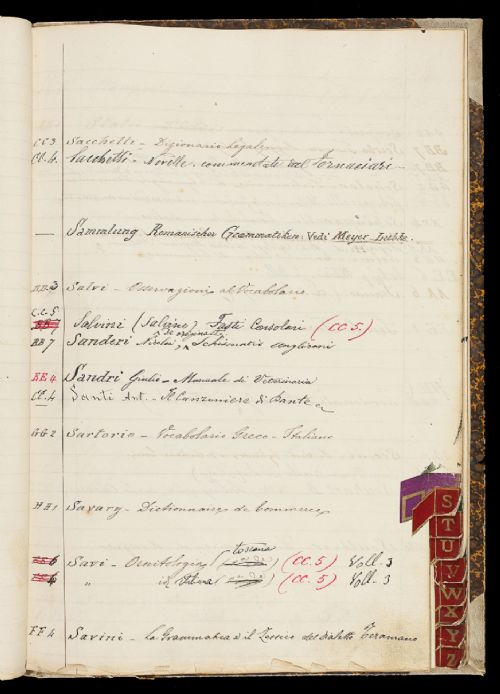 CC3 Sacchetti - Dizionario legale
CC.4 Sacchetti - Novelle. commentate dal Fornaciari -
— Sammlung Romanischer Grammatiken: Vedi Meyer-Lübke.
3 Salvi - Osservazioni al Vocabolario
C.C.5
Salvini (Salvino) Fasti Consolari (CC 5.)
BB7 Sanderi Nicolai de origine Schismatis anglicani
EE4 Sandri Giulio - Manuale di Veterinaria
CC.4 Santi Ant. - Il Canzoniere di Dante
GG2 Sartorio - Vocabolario Greco - Italiano
HH1 Savary - Dictionnaire de Commerce
6 Savi - Ornitologia (toscana) (CC.5) Voll. 3
6 " id (CC.5) Voll. 3
FF4 Savini - La Grammatica e il Lessico del dialetto Teramano
S
T
U
V
W
X
Y
Z